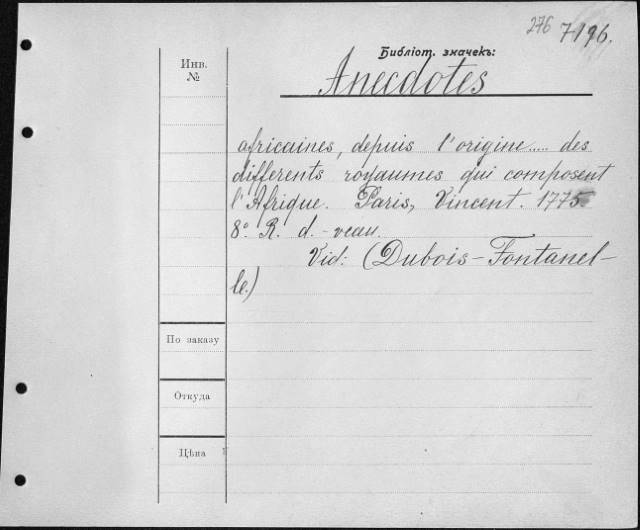 276 7196.
Библіот. значекъ:
Инв.
№
Anecdotes
africaines, depuis l'origine.... des
differents royaumes qui composent
l'Afrique. Paris, Vincent. 1775
8° R. d.-veau.
Vid: (Dubois-Fontanel-
le.)
По заказу
Откуда
Цѣна